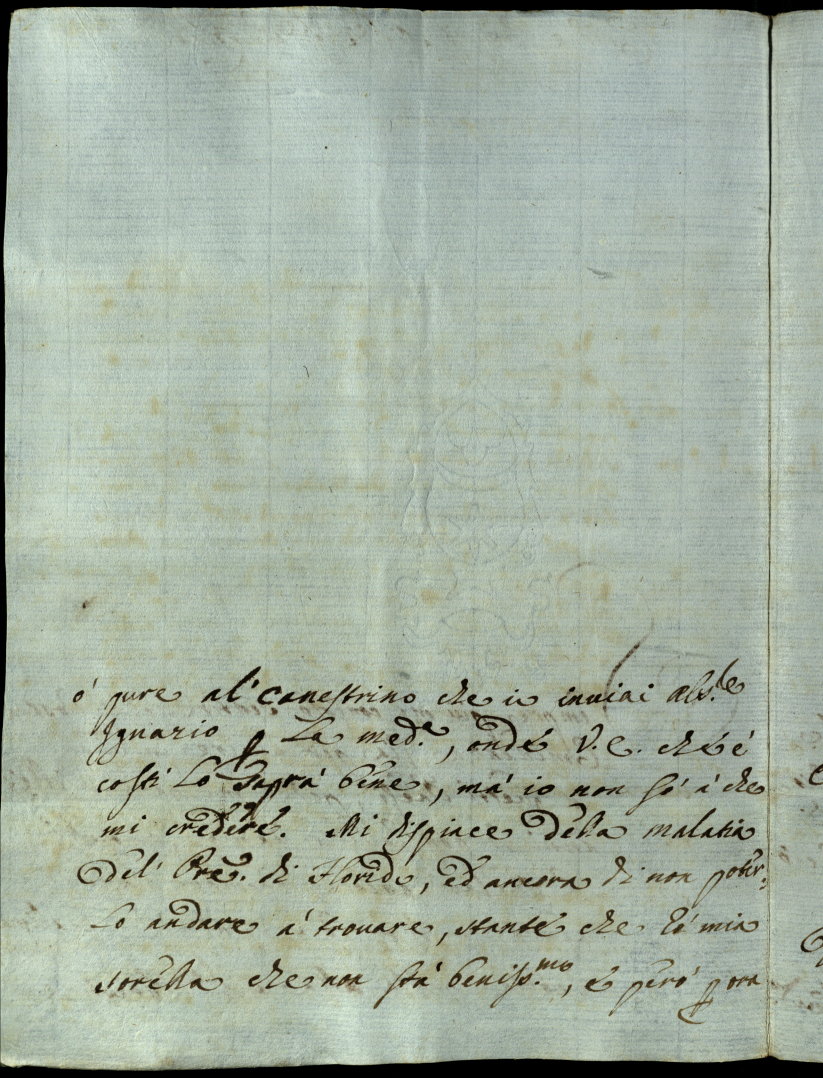 ó pure al' canestrino che io inviai al S.r le
Ignazio p La med.a, onde V. E. che é
costi Lo saprà bene, mà io non só á che
mi credere. Mi dispiace della malatia
del' Pre. di Florido, ed ancora di non poter-
Lo andare a' trovare, stante che hó mia
sorella che non stà beniss.mo, e peró p ora